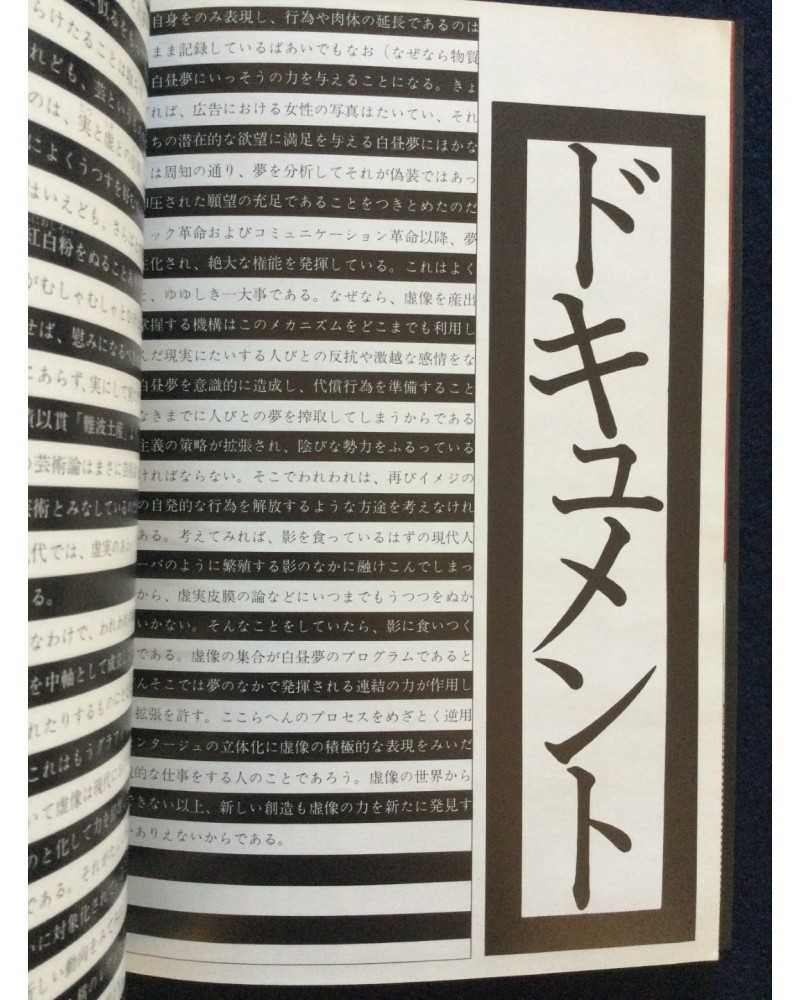 に似るとも
らけたることは
れども、芸という
のは、実と虚との
によくうつすを
はいえども、さらば
紅白粉をぬること
がむしゃむしゃと
せば、慰みになるべ
にあらず、実にして
貫「難波土産」
芸術論はまさに
芸術とみなしているの
代では、虚実のあ
る。
なわけで、われわれ
を中軸として成立
れたりするものに
これはもうグラフ
いて虚像は現代にお
のと化して力を
である。それが
に対象化されて
新しい動向を
自身をのみ表現し、行為や肉体の延長であるのは
まま記録しているばあいでもなお（なぜなら物質
白昼夢にいっそうの力を与えることになる。きょ
れば、広告における女性の写真はたいてい、それ
ちの潜在的な欲望に満足を与える白昼夢にほかな
は周知の通り、夢を分析してそれが偽装ではあっ
圧された願望の充足であることをつきとめたのだ
ック革命およびコミュニケーション革命以降、夢
化され、絶大な権能を発揮している。これはよく
、ゆゆしき一大事である。なぜなら、虚像を産出
掌握する機構はこのメカニズムをどこまでも利用し
んだ現実にたいする人びとの反抗や激越な感情をな
白昼夢を意識的に造成し、代償行為を準備すること
なきまでに人びとの夢を搾取してしまうからである
主義の策略が拡張され、陰びな勢力をふるっている
ければならない。そこでわれわれは、再びイメジの
の自発的な行為を解放するような方途を考えなけれ
ある。考えてみれば、影を食っているはずの現代人
ーバのように繁殖する影のなかに融けこんでしまっ
から、虚実皮膜の論などにいつまでもうつつをぬか
いかない。そんなことをしていたら、影に食いつく
である。虚像の集合が白昼夢のプログラムであると
んそこでは夢のなかで発揮される連結の力が作用し
拡張を許す。ここらへんのプロセスをめざとく逆用
ンタージュの立体化に虚像の積極的な表現をみいだ
的な仕事をする人のことであろう。虚像の世界から
できない以上、新しい創造も虚像の力を新たに発見す
ありえないからである。
ドキュメント